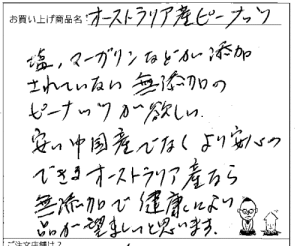 お買い上げ商品名：オーストラリア産ピーナッツ
塩，マーガリンなどが添加
されていない無添加の
ピーナッツが欲しい．
安い中国産でなく より安心の
できるオーストラリア産なら
無添加で健康によい
品が望ましいと思います．
ご注文店舗は？